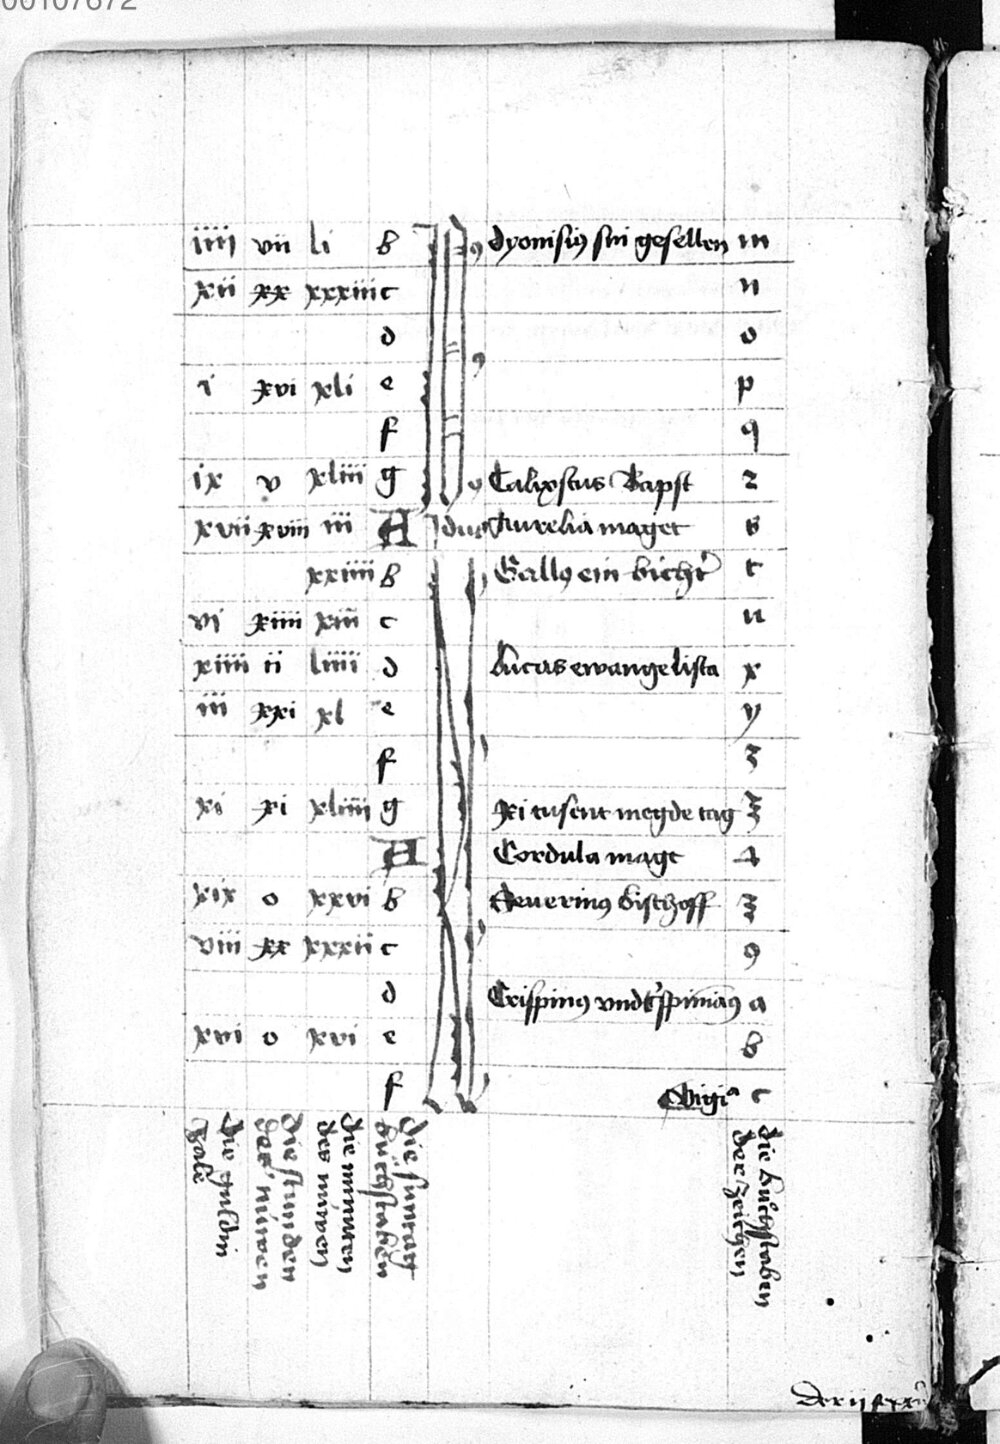 00107672
iiii vii li b dyonisius sin gesellen m
xii xx xxxiii c n
d o
i xvi xli e p
f q
ix v xliii g Calixstus Bapst z
xvii xviii iii A Aurelia maget s
xxiiii b Gallus ein bichter t
vi xiiii xiii c u
xiiii ii liiii d Lucas ewangelista x
iii xxi xl e y
f z
xi xi xliiii g xi tusent megde tag
A Cordula magt
xix o xxvi b Seuerinus bischoff
viii xx xxxii c 9
d Crispinus vnd Crispinianus a
xvi o xvi e b
f Vigia c
Die guldin
Zale
Die stunden
der nuwen
Die minuten
des nuwen
Die suntag
buchstaben
Die buchstaben
der zeichen